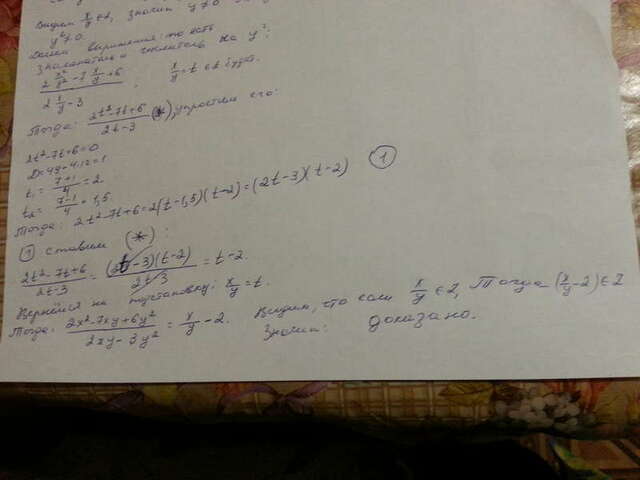 Видим x/y ∈ Z, значит y≠0
y²≠0.
Делим выражения: то есть
знаменатель и числитель на y²:
(2 x²/y² - 7 x/y + 6)/(2 x/y - 3) ; x/y = t ∈ Z будет.
Тогда: (2t²-7t+6)/(2t-3) (*), упростим его:
2t²-7t+6=0
D=49-4·12=1
t₁ = (7+1)/4 = 2.
t₂ = (7-1)/4 = 1,5.
Тогда: 2t²-7t+6=2(t-1,5)(t-2)=(2t-3)(t-2) ①
① ставим (*) :
(2t²-7t+6)/(2t-3) = ((2t-3)(t-2))/(2t-3) = t-2.
Вернёмся на подстановку: x/y = t.
Тогда: (2x²-7xy+6y²)/(2xy-3y²) = x/y - 2. Видим, что если x/y ∈ Z, Тогда (x/y - 2) ∈ Z
Значит: доказано.